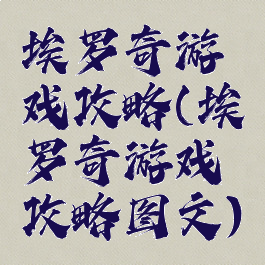 埃罗奇游
戏攻略(埃
罗奇游戏
攻略图文)